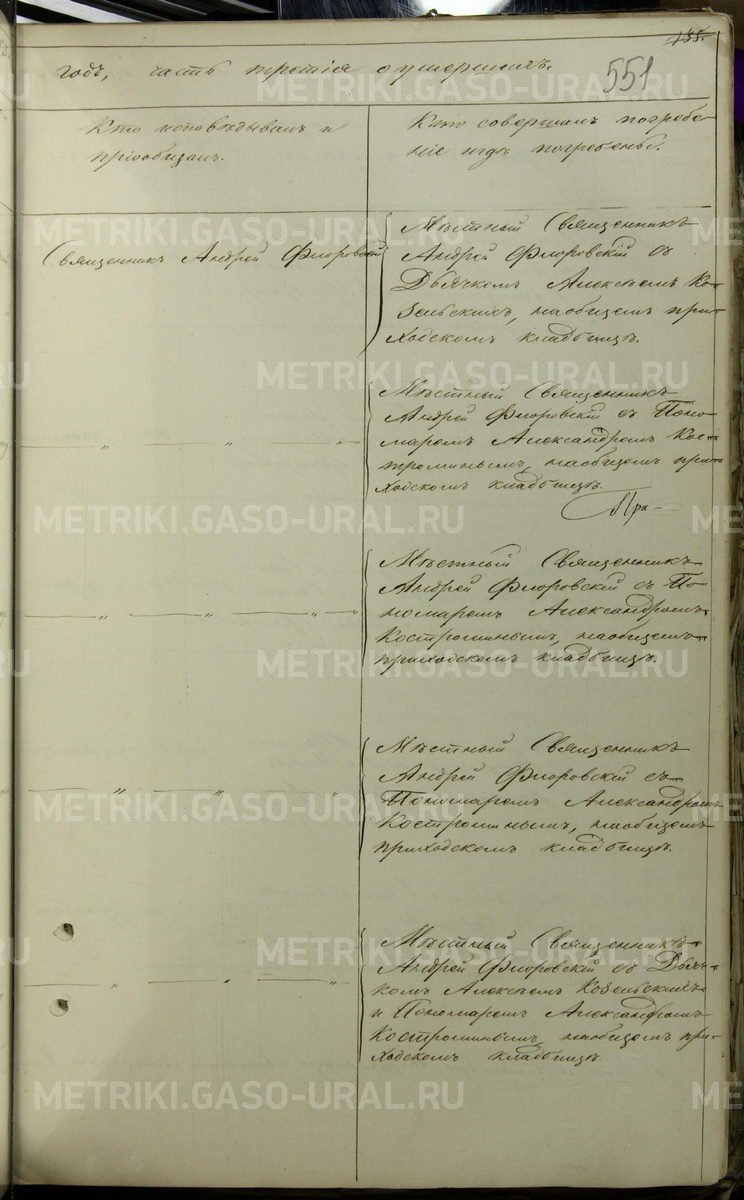 135.
551
годъ, часть третія о умершихъ.
Кто исповѣдывалъ и
пріобщалъ.
Кто совершалъ погребе-
ніе и гдѣ погребены.
Священникъ Андрей Флоровскій
Мѣстный Священникъ
Андрей Флоровскій съ
Дьячкомъ Алексѣемъ Ко-
зельскимъ, на общемъ при-
ходскомъ кладбищѣ.
Мѣстный Священникъ
Андрей Флоровскій съ Поно-
маремъ Александромъ Кос-
троминымъ, на общемъ при-
ходскомъ кладбищѣ.
Мѣстный Священникъ
Андрей Флоровскій съ По-
номаремъ Александромъ
Костроминымъ, на общемъ
приходскомъ кладбищѣ.
Мѣстный Священникъ
Андрей Флоровскій съ
Пономаремъ Александромъ
Костроминымъ, на общемъ
приходскомъ кладбищѣ.
Мѣстный Священникъ
Андрей Флоровскій съ Дьяч-
комъ Алексѣемъ Козельскимъ
и Пономаремъ Александромъ
Костроминымъ, на общемъ при-
ходскомъ кладбищѣ.
METRIKI.GASO-URAL.RU